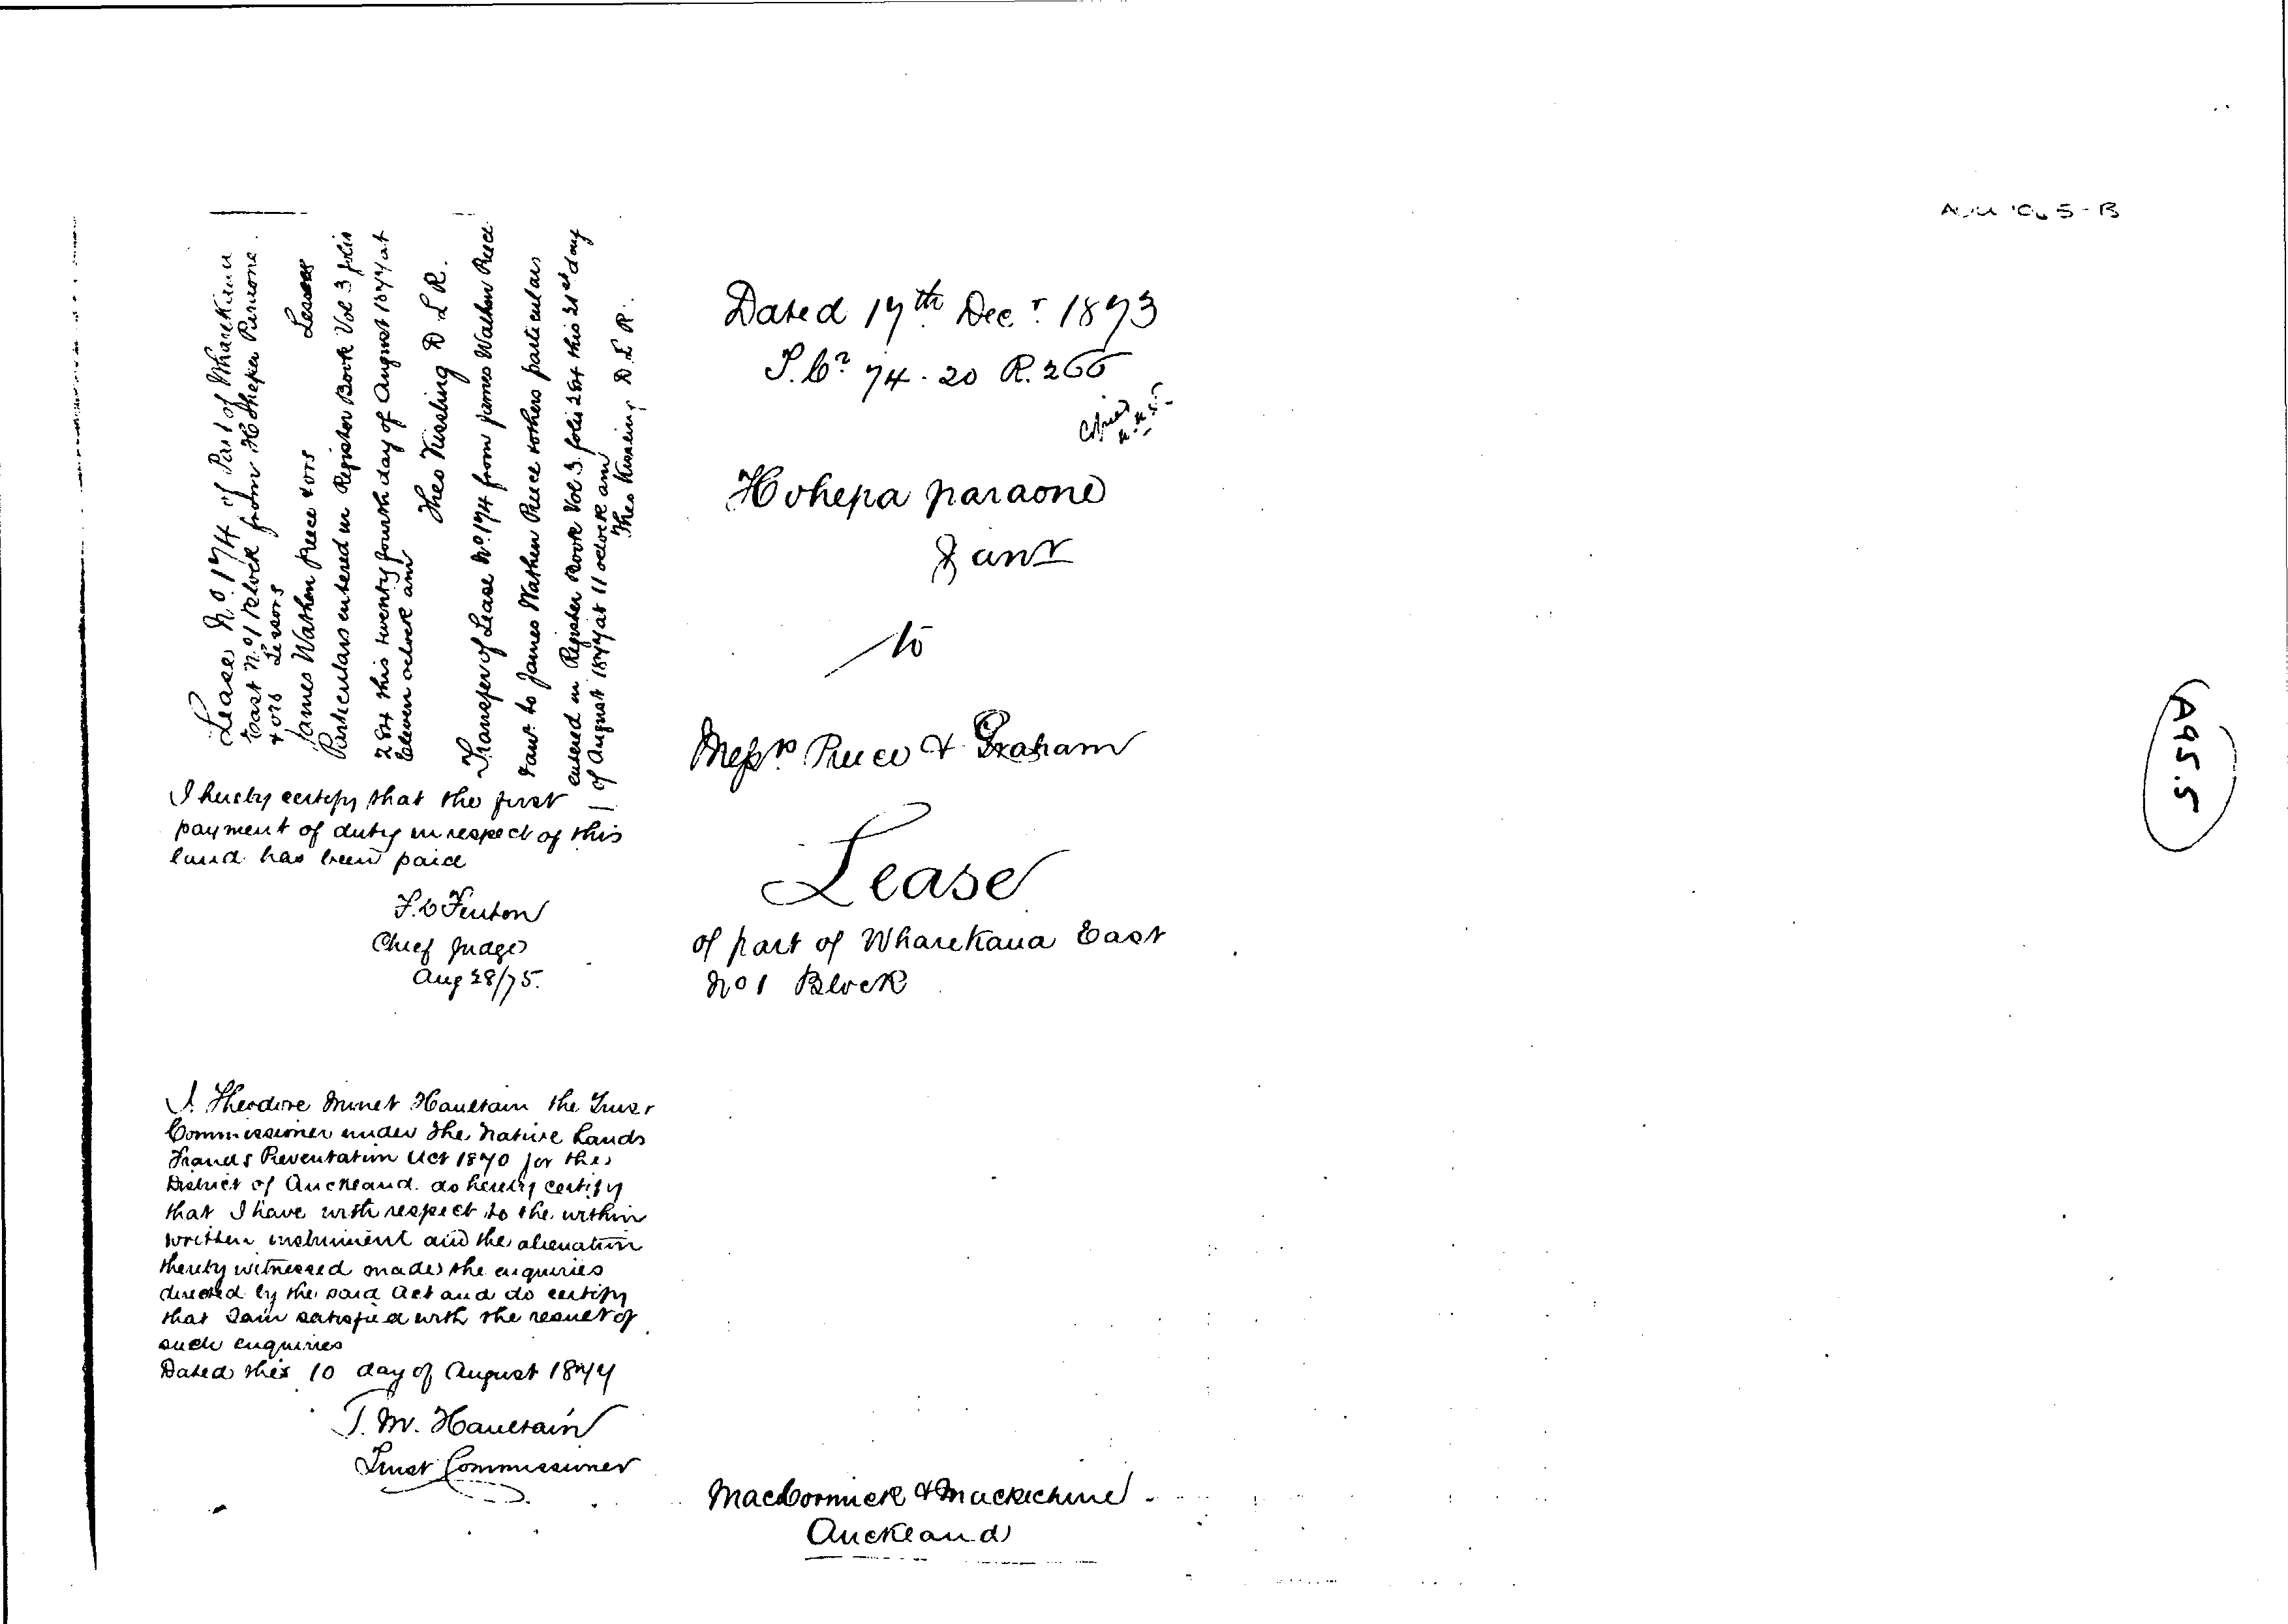 Lease No. 174 of Part of Wharekaua
East No 1 Block from Hohepa Paraone
& ors Lessors
James Wathen Preece & ors Lessees
Particulars entered in Register Book Vol 3 folio
284 this twenty fourth day of August 1877 at
Eleven oclock am
Theo Kissling D L R.
Transfer of Lease No. 174 from James Wathen Preece
& anr. to James Wathen Preece & others particulars
entered in Register Book Vol 3 folio 284 this 21st day
of August 1877 at 11 oclock am
Theo Kissling D.L.R.
I hereby certify that the first
payment of duty in respect of this
land has been paid
F.D Fenton
Chief Judge
Aug 28/75.
I. Theodore Minet Haultain the Trust
Commissioner under the Native Lands
Frauds Preventation Act 1870 for the
District of Auckland do hereby certify
that I have with respect to the within
written instrument and the alienation
thereby witnessed made the enquiries
directed by the said Act and do certify
that I am satisfied with the result of
such enquiries
Dated this 10 day of August 1877
T. M. Haultain
Trust Commissioner
Dated 17th Decr. 1873
74. 20 R. 266
Copied
Hohepa paraone
& anr
to
Messrs Preece & Graham
Lease
of part of Wharekaua East
No 1 Block
MacCormick & Mackechnie
Auckland
A95.5